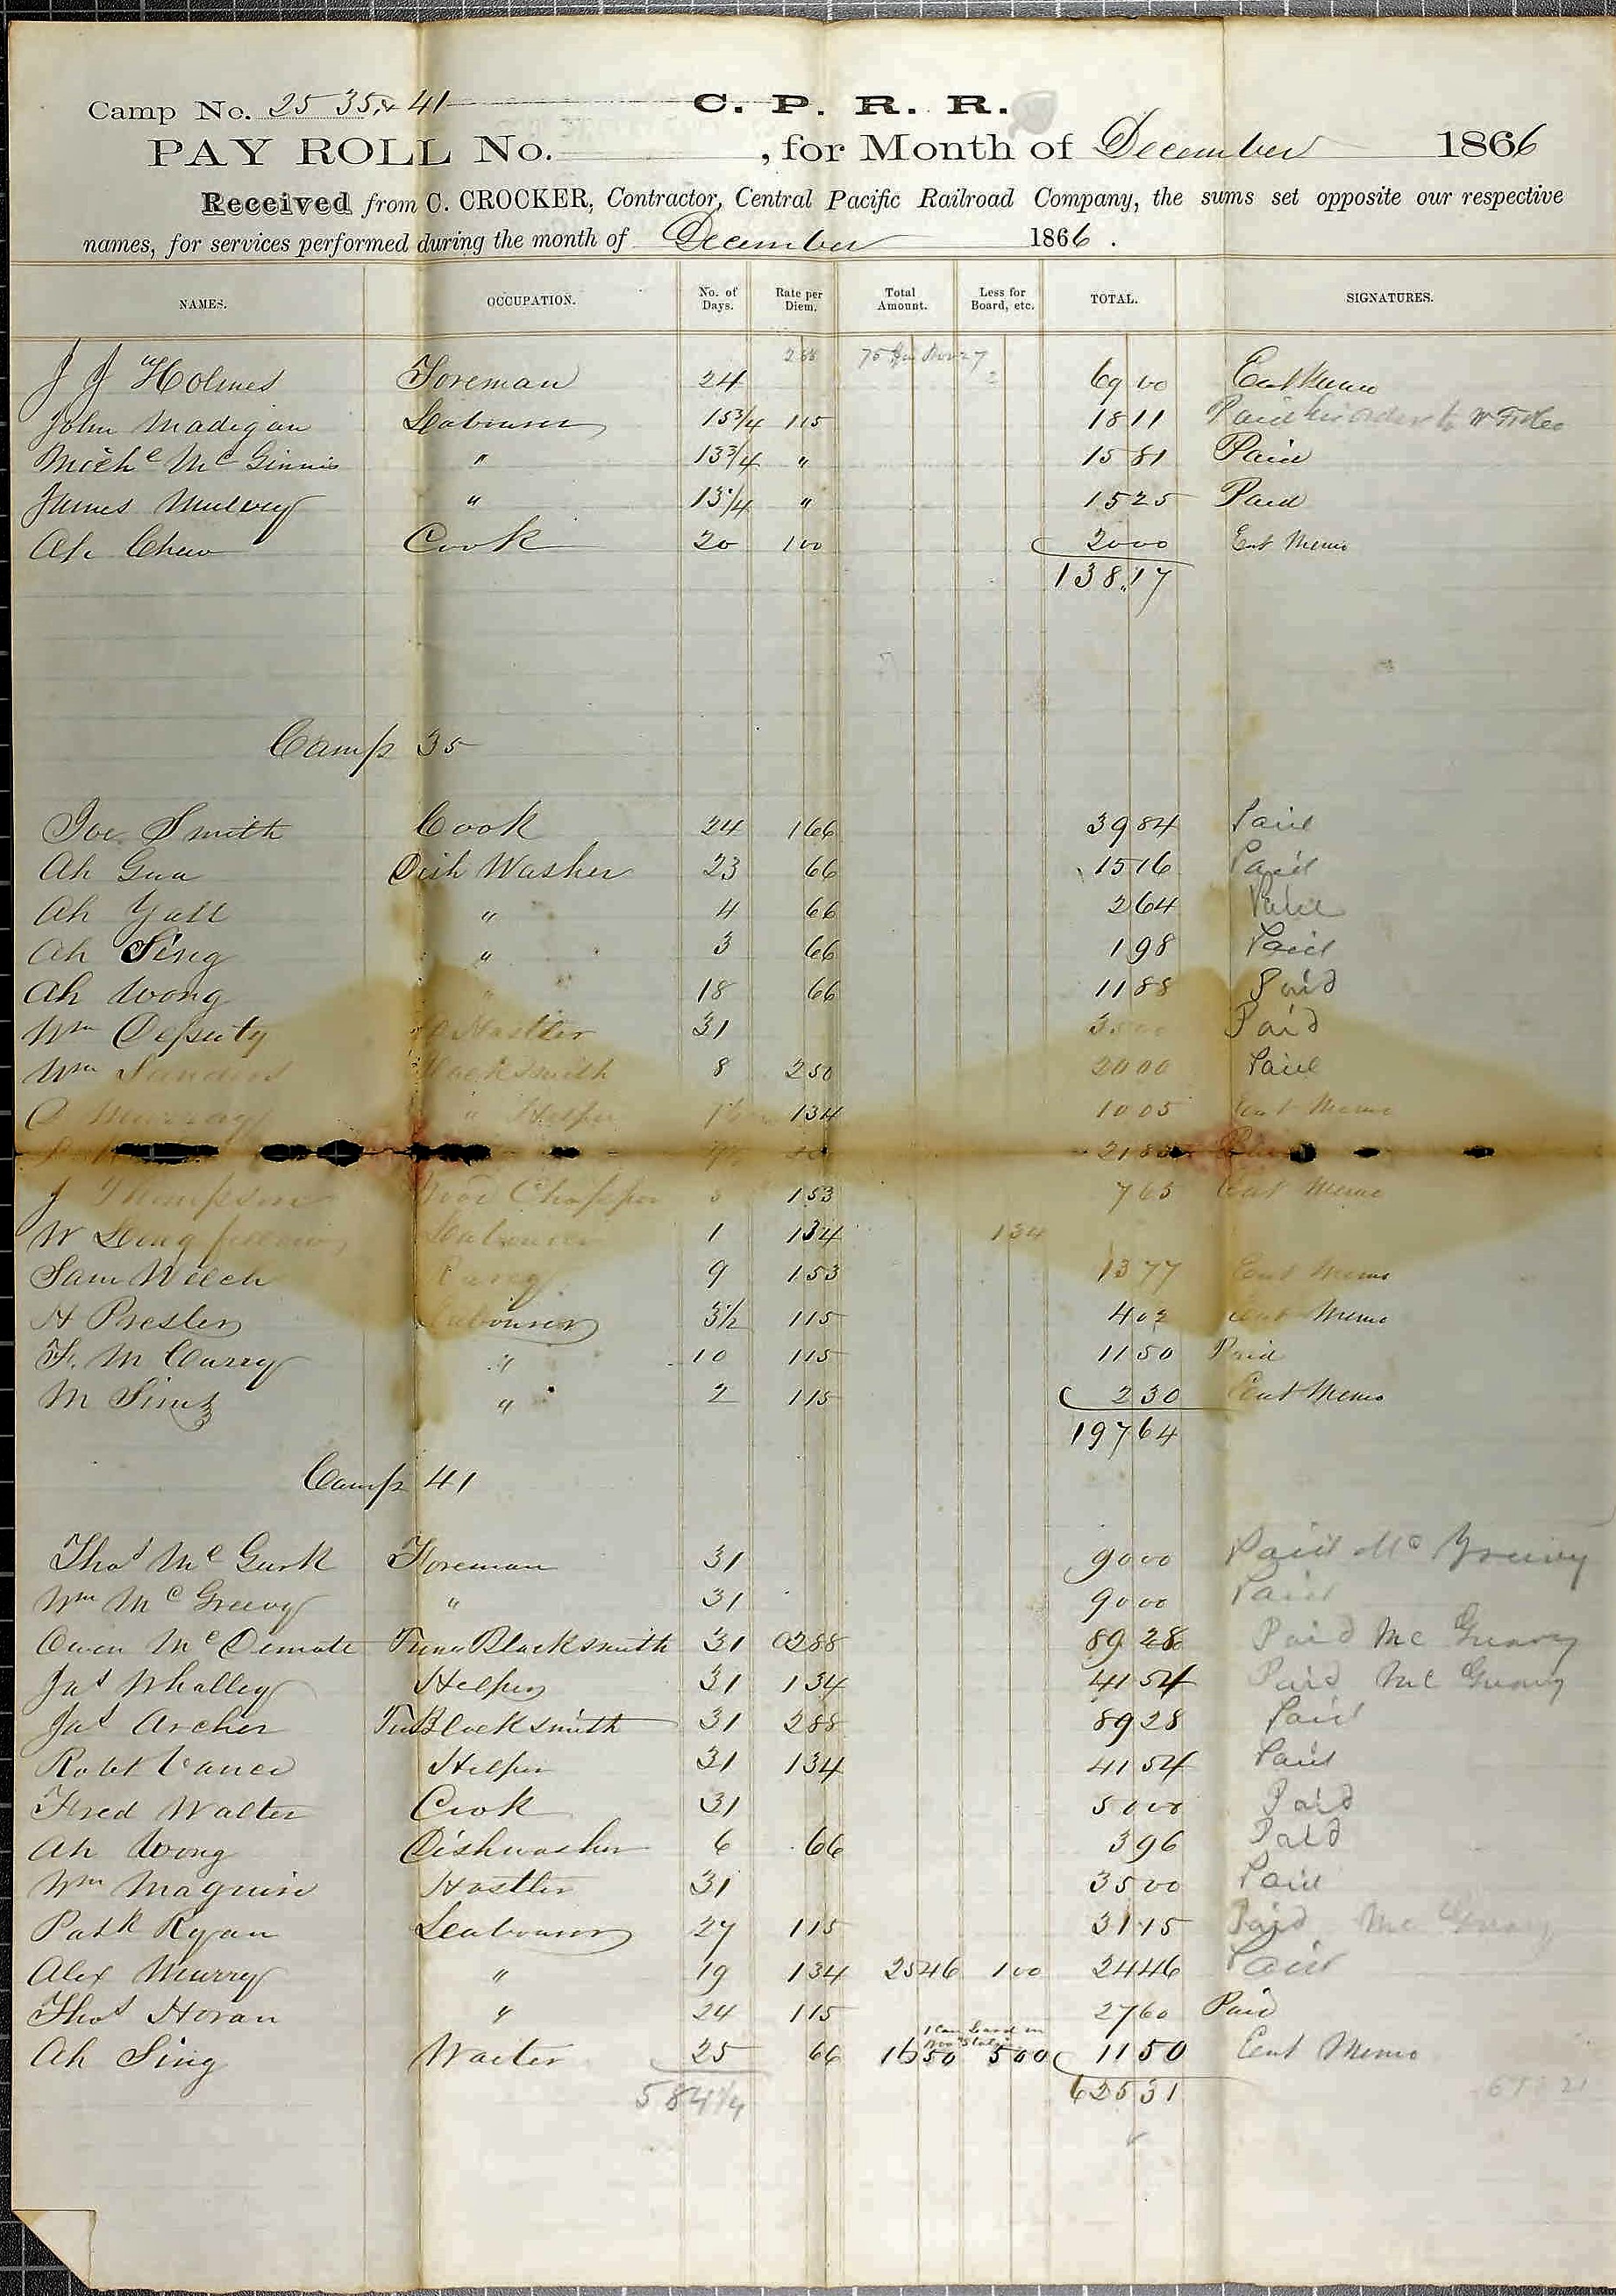 Camp No. 25 35 & 41 C. P. R. R.
PAY ROLL No. , for Month of December 1866
Received from C. CROCKER, Contractor, Central Pacific Railroad Company, the sums set opposite our respective
names, for services performed during the month of December 1866.
NAMES. OCCUPATION. No. of Days. Rate per Diem. Total Amount. Less for Board, etc. TOTAL. SIGNATURES.
J J Holmes Foreman 24 69 00 Cent Memo
John Madigan Labourer 15 3/4 115 18 11 Paid his order to W F & Co
Miche Mc Ginnis " 13 3/4 " 15 81 Paid
James Mulvey " 13 1/4 " 15 25 Paid
Ah Chew Cook 20 100 20 00 Cent Memo
138.17
Camp 35
Joe Smith Cook 24 166 39 84 Paid
Ah Gua Dish Washer 23 66 15 16 Paid
Ah Yall " 4 66 2 64 Paid
Ah Sing " 3 66 1 98 Paid
Ah Wong " 18 66 11 88 Paid
Wm Deputy Hostler 31 35 00 Paid
Wm Sanders Blacksmith 8 250 20 00 Paid
Murray " Helper 134 10 05 Cent Memo
J Thompson Wood Chopper 5 153 7 65 Cent Memo
W Longfellow Labourer 1 134 134
Sam Welch 9 153 13 77 Cent Memo
H Presley Labourer 3 1/2 115 4 02 Cent Memo
F. M Curry " 10 115 11 50 Paid
M Sims " 2 115 2 30 Cent Memo
197 64
Camp 41
Thos Mc Gurk Foreman 31 90 00 Paid Mc Greevy
Wm Mc Greevy " 31 90 00 Paid
Owen Mc Dermott Blacksmith 31 288 89 28 Paid Mc Greavy
Jas Whalley Helper 31 134 41 54 Paid Mc Greavy
Jas Archer Blacksmith 31 288 89 28 Paid
Robt Vance Helper 31 134 41 54 Paid
Fred Walter Cook 31 50 00 Paid
Ah Wong Dishwasher 6 66 3 96 Paid
Wm Maguire Hostler 31 35 00 Paid
Patk Ryan Labourer 27 115 31 15 Paid Mc Greavy
Alex Murry " 19 134 25 46 1 00 24 46 Paid
Thos Horan " 24 115 27 60 Paid
Ah Sing Waiter 25 66 16 50 5 00 11 50 Cent Memo
584 1/4 625 31